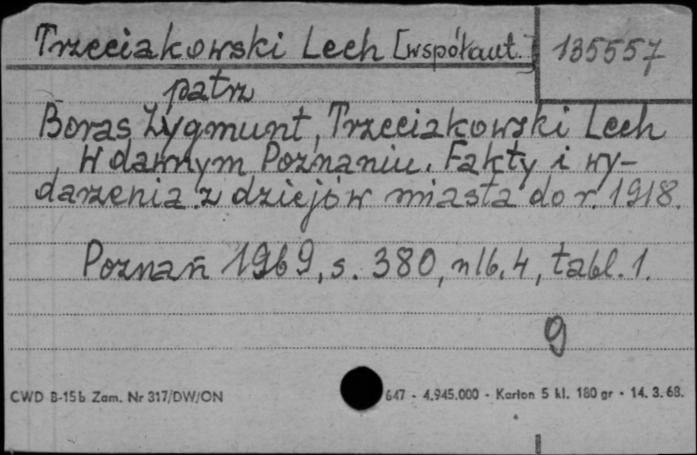 Trzeciakowski Lech [współaut.] 135557
patrz
Boras Zygmunt, Trzeciakowski Lech
W dawnym Poznaniu. Fakty i wy-
darzenia z dziejów miasta do r. 1918.
Poznań 1969, s. 380, nlb. 4, tabl. 1.
9
CWD B-15b Zam. Nr 317/DW/ON 647 - 4.945.000 - Karton 5 kl. 180 gr - 14. 3. 68.